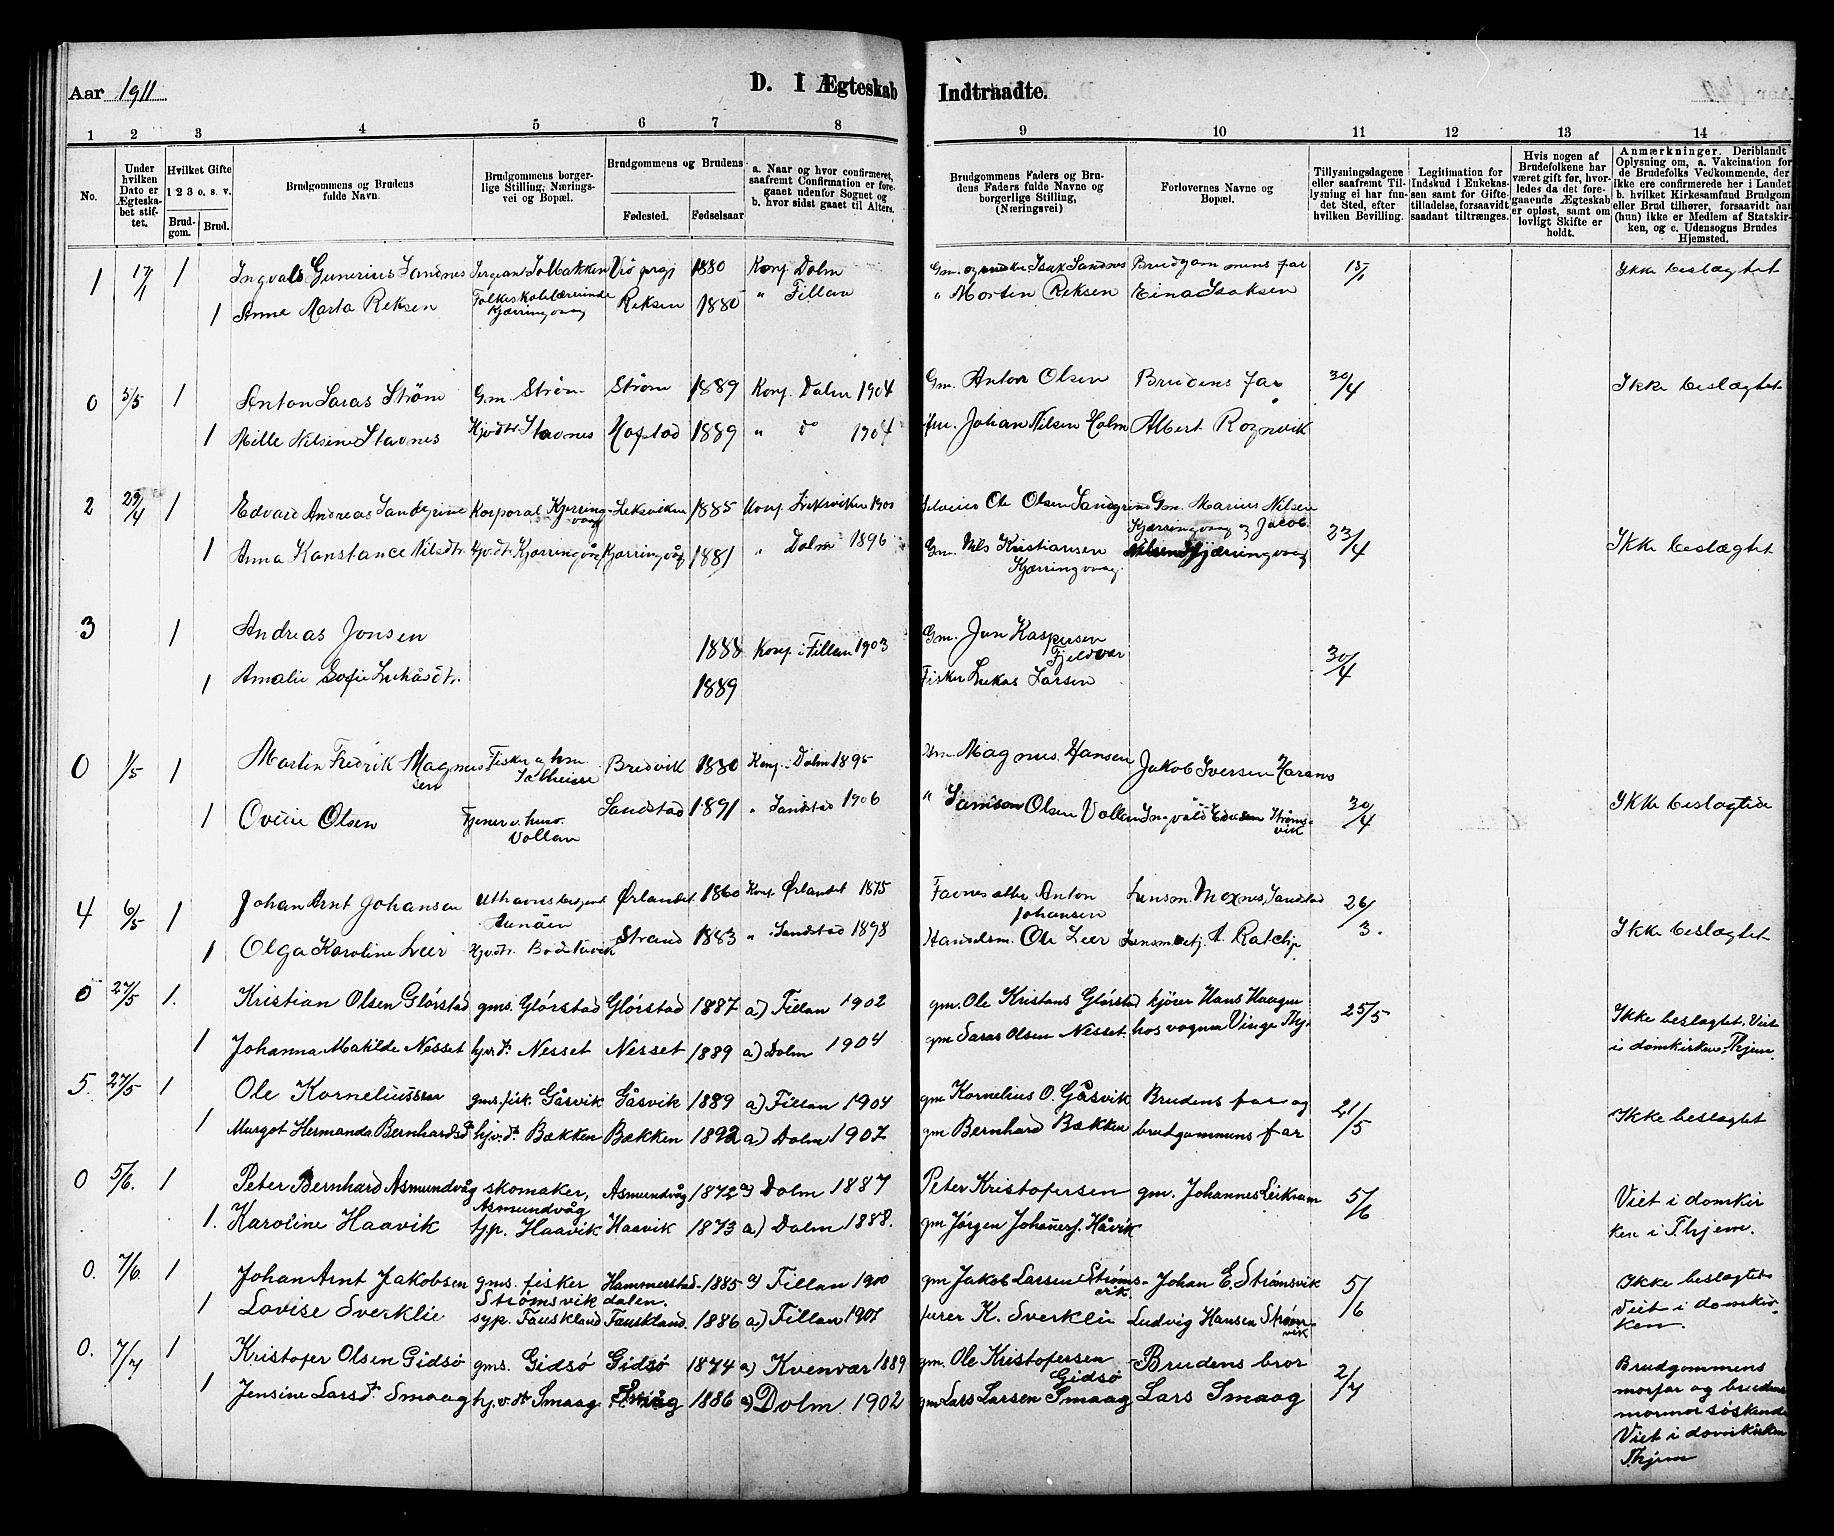 Aar 1911
D. I Ægteskab Indtraadte.
1 2 3 4 5 6 7 8 9 10 11 12 13 14
No.
Under hvilken Dato er Ægteskabet stiftet.
Hvilket Gifte 1 2 3 o. s. v.
Brudgom. Brud.
Brudgommens og Brudens fulde Navn.
Brudgommens borgerlige Stilling, Næringsvei og Bopæl.
Brudgommens og Brudens
Fødested. Fødselsaar
a. Naar og hvor confirmeret, saafremt Confirmation er foregaaet udenfor Sognet og b. hvor sidst gaaet til Alters.
Brudgommens Faders og Brudens Faders fulde Navne og borgerlige Stilling, (Næringsvei)
Forlovernes Navne og Bopæl.
Tillysningsdagene eller saafremt Tillysning ei har fundet Sted, efter hvilken Bevilling.
Legitimation for Indskud i Enkekassen samt for Giftetilladelse, forsaavidt saadant tiltrænges.
Hvis nogen af Brudefolkene har været gift før, hvorledes da det foregaaende Ægteskab er opløst, samt om lovligt Skifte er holdt.
Anmærkninger. Deriblandt Oplysning om, a. Vakcination for de Brudefolks Vedkommende, der ikke ere confirmerede her i Landet b. hvilket Kirkesamfund Brudgom eller Brud tilhører, forsaavidt han (hun) ikke er Medlem af Statskirken, og c. Udensogns Brudes Hjemsted.
1 17/1 1 Ingvald Gunerius Sandnes 1880 Konf. Dolm Isak Sandnes Brudgommens far 15/1 Ikke beslægtet
1 Anna Marta Reksen Folkeskolelærerinde Kjærringvaag Reksen 1880 " Fillan " Morten Reksen Einar Isaksen
0 5/5 1 Anton Saras Strøm Gm. Strøm Strøm 1889 Konf. Dolm 1904 Gm. Anton Olsen Brudens far 30/4 Ikke beslægtet
1 Mille Nilsine Stavnes Stavnes Hofstad 1889 " do 1904 Johan Nilsen Holm Albert
2 29/4 1 Edvard Andreas Korporal Kjerringvaag Leksviken 1885 Konf. Leksviken 1900 Ole Olsen Gm. Marius Nilsen
Kjærringvaag og Jacob
1 Anna Konstance Nilsdtr. Kjærringvåg Kjærringvåg 1881 " Dolm 1896 Gm. Nils Kristiansen Kjærringvaag. Nilsen Kjærringvaag 23/4 Ikke beslægtet
3 1 Andreas Jonsen 1888 Konf. i Fillan 1903 Gm. Jon Kaspersen Fjeldvær
1 Amalie Sofie 1889 Fisker Lukas Larsen 30/4
0 1/5 1 Martin Fredrik Magnussen Fisker Bredvik 1880 Konf. Dolm 1895 Magnus Hansen Jakob Iversen
1 Olsen Vollan Sandstad 1891 " Sandstad 1906 " Samson Olsen Vollan Ingvald Strømsvik 30/4 Ikke beslægtede
4 6/5 1 Johan Arnt Johansen Ørlandet 1860 Konf. Ørlandet 1875 Anton Johansen Lensm. Moxnes, Sandstad 26/3.
1 Olga Karoline Leer Strand 1883 " Sandstad 1898 Handelsm. Ole Leer Ikke beslægtet
0 27/5 1. Kristian Olsen Glörstad gms. Glörstad Glörstad 1887 a) Fillan 1902 gm. Ole Kristians Glörstad kjører Hans Haagen 25/5 Ikke beslægtet. Viet
1 Johanna Matilde Nesset Nesset Nesset 1889 a) Dolm 1904 gm Saras Olsen Nesset. hos vognm Vinge Thj. i domkirken Thjem.
5. 27/5 1 Ole Korneliussen gms. fisk. Gåsvik Gåsvik 1889 a) Fillan 1904 gm Kornelius O. Gåsvik Brudens far og 21/5 Ikke beslegtet
1 Margot Hermanda Bernhardsdt. hjv. dt. Bækken Bækken 1892 a) Dolm 1907 gm Bernhard Bækken brudgommens far
0 5/6. 1 Peter Bernhard Asmundvåg skomaker, Asmundvåg Asmundvåg 1872 a) Dolm 1887 Peter Kristofersen gm. Johannes Leikvam 5/6 Viet i domkir
1. Karoline Haavik Haavik Haavik 1873 a) Dolm 1888. gm Jørgen Johanes. Håvik ken i Thjem.
0. 7/6. 1 Johan Arnt Jakobsen gms. fisker Strømsvik Hammerstad-dalen. 1885 a) Fillan 1900 gm Jakob Larsen Strømsvik. Johan E. Strømsvik 5/6 Ikke beslegtet
1 Lovise Sverklie syp. Fauskland Fauskland. 1886 a) Fillan 1901 furer K. Sverkli Ludvig Hansen Strømvik Viet i domkirken.
0. 7/7 1 Kristofer Olsen Gidsø gms. Gidsø Gidsø 1874 a) Kvenvær 1889 gm. Ole Kristofersen Gidsø Brudens bror 2/7 Brudgommens
1 Jensine Larsdt. Smaag hj.v.dt. Smaag Smaag 1886 a) Dolm 1902 gm Lars Larsen Smaag Lars Smaag morfar og brudens
mormor søskende
Viet i domkirken
Thjem